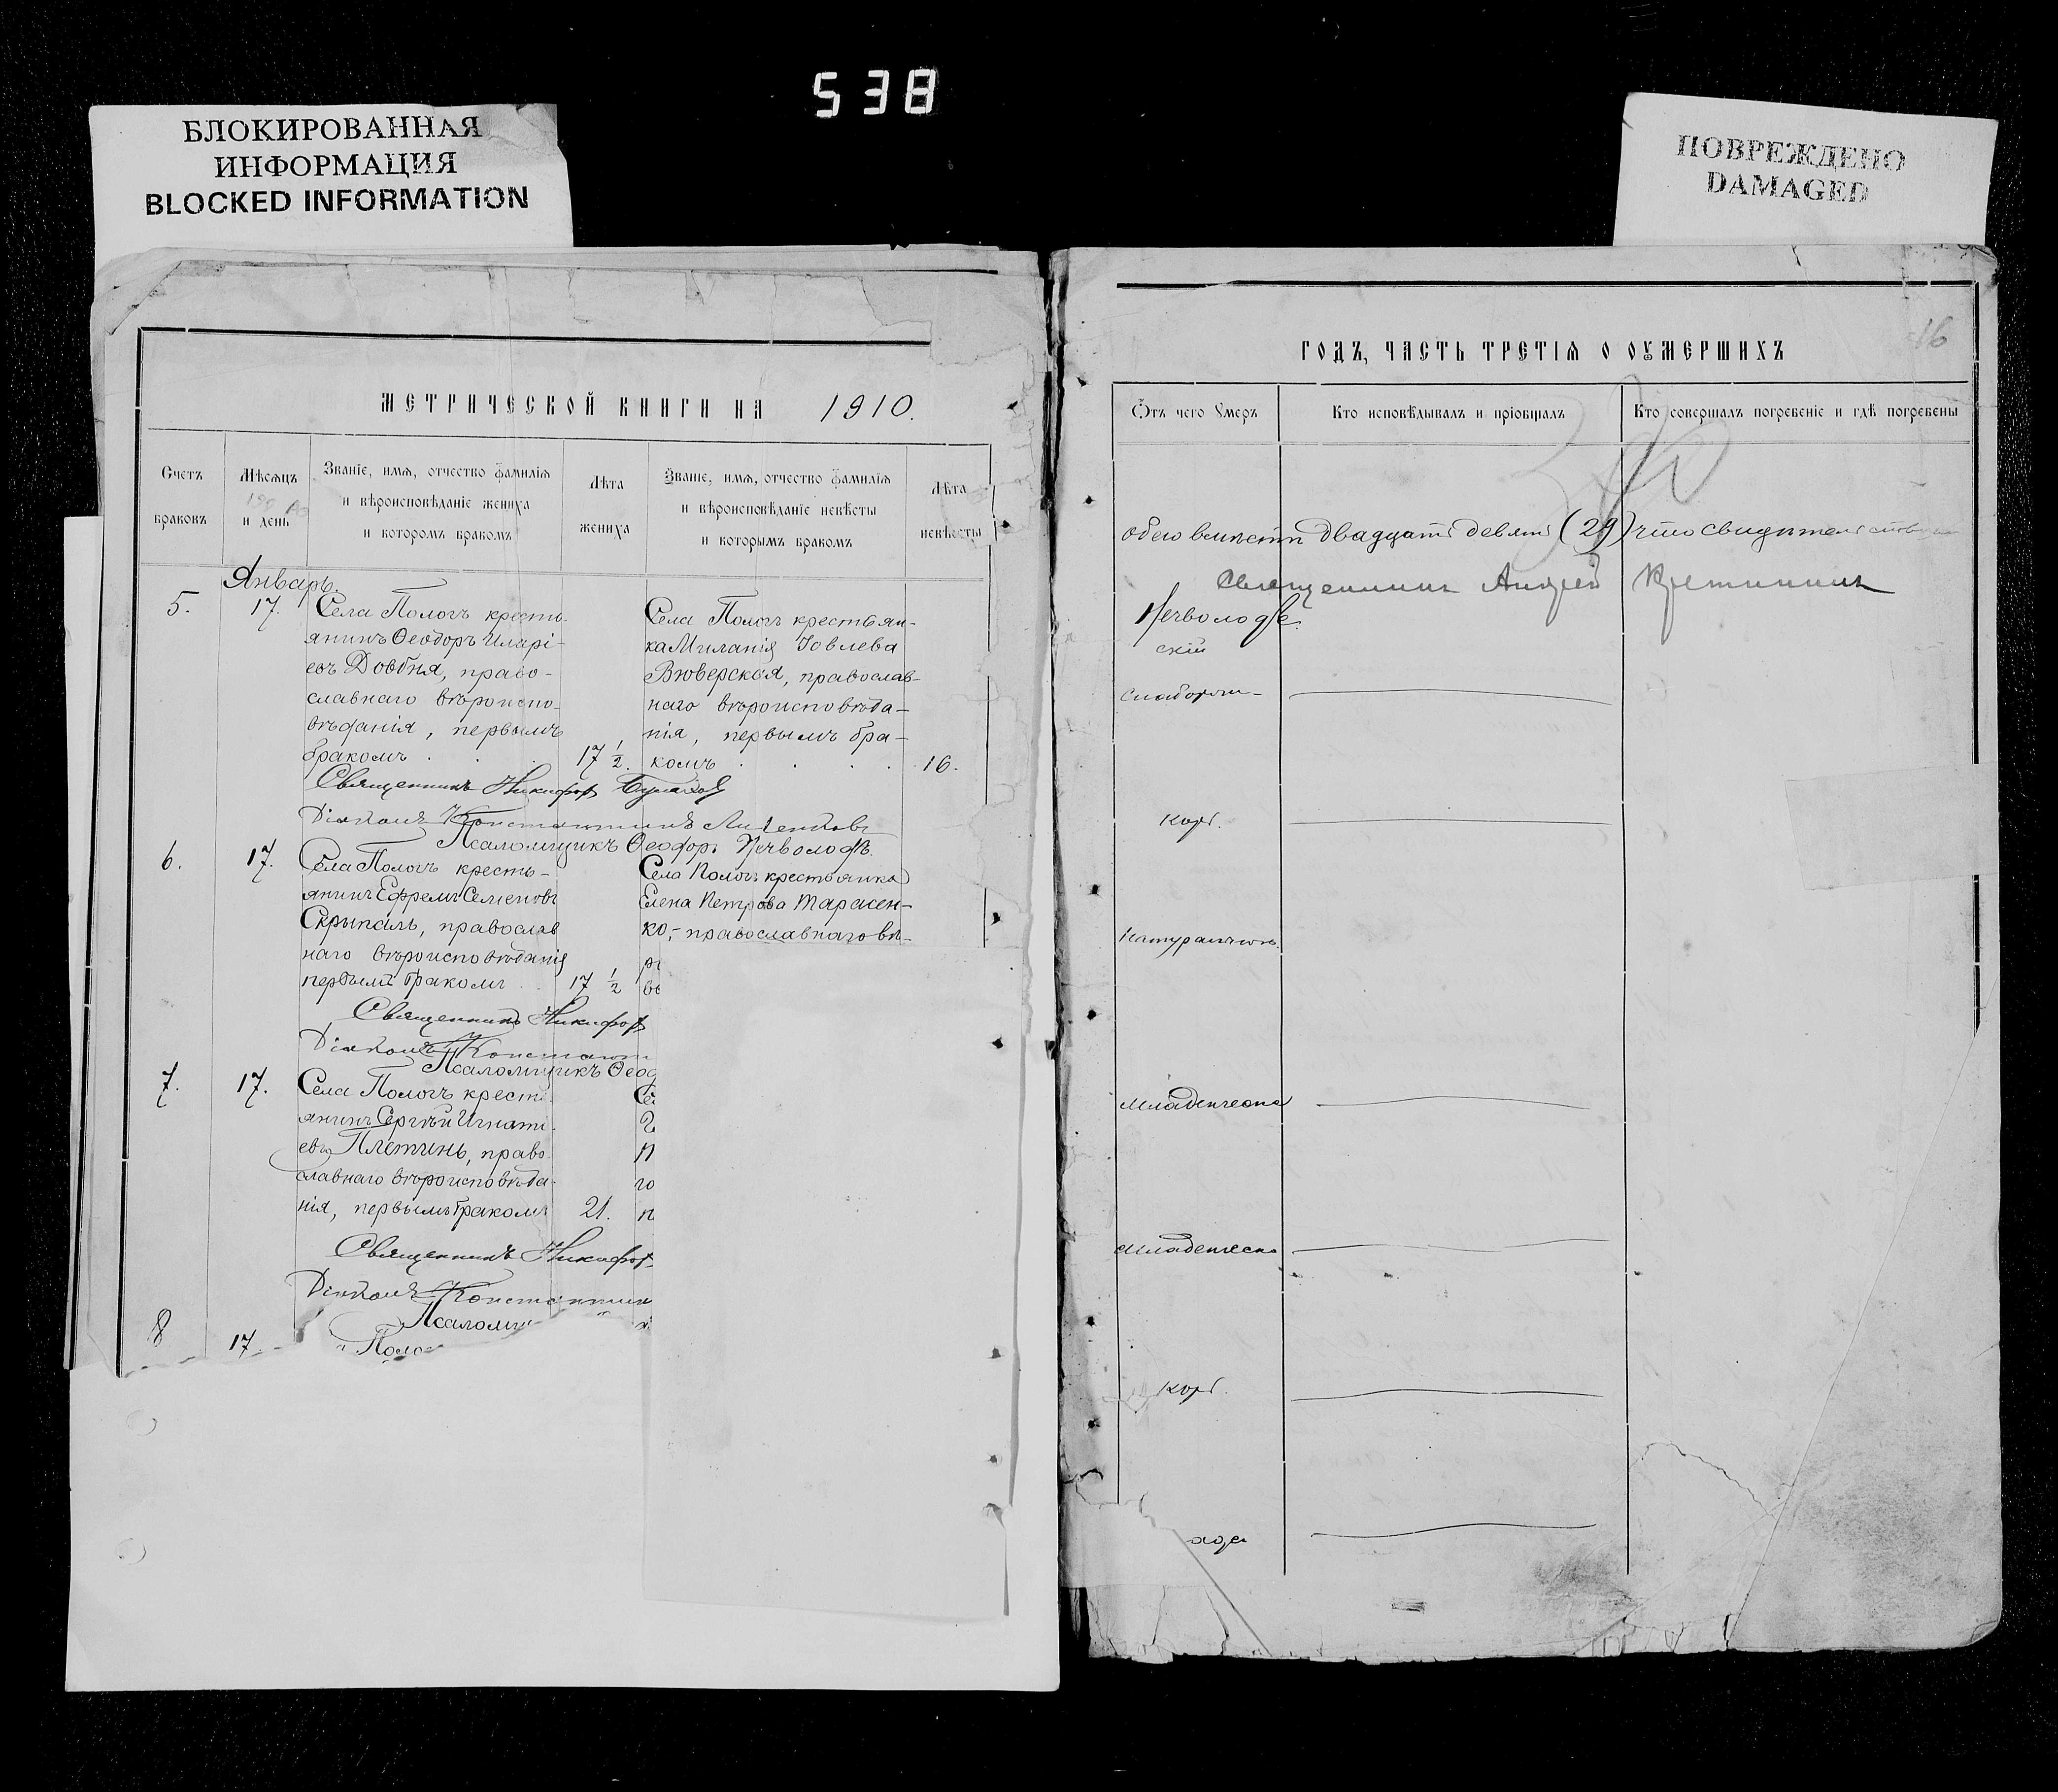 538
БЛОКИРОВАННАЯ
ИНФОРМАЦИЯ
BLOCKED INFORMATION
ПОВРЕЖДЕНО
DAMAGED
МЕТРИЧЕСКОЙ КНИГИ НА 1910.
Счетъ
браковъ
Мѣсяцъ
и день
Званіе, имя, отчество фамилія
и вѣроисповѣданіе жениха
и которомъ бракомъ
Лѣта
жениха
Званіе, имя, отчество фамилія
и вѣроисповѣданіе невѣсты
и которымъ бракомъ
Лѣта
невѣсты
Январь.
5.
17.
Села Пологъ кресть-
янинъ Ѳеодоръ Иларі-
евъ Довбня, право-
славнаго вѣроиспо-
вѣданія, первымъ
бракомъ
17 1/2.
Села Пологъ крестьян-
ка Миланія Іовлева
Вюверская, православ-
наго вѣроисповѣда-
нія, первымъ бра-
комъ
16.
Священникъ Никифоръ
Діаконъ Константинъ
Псаломщикъ Ѳеодоръ Нечволодъ.
6.
17.
Села Пологъ кресть-
янинъ Ефремъ Семеновъ
Скрыпаль, православ
наго вѣроисповѣданія
первымъ бракомъ
17 1/2
Села Пологъ крестьянка
Елена Петрова Тарасен-
ко, православнаго вѣ-
Священникъ Никифоръ
Діаконъ Констант
Псаломщикъ Ѳеод
7.
17.
Села Пологъ кресть
янинъ Сергѣй Игнаті
евъ Плетинь, право
славнаго вѣроисповѣда-
нія, первымъ бракомъ
21.
го
Священникъ Никифор
Діаконъ Константин
Псаломщ
8
17.
Поло
16
ГОДЪ, ЧАСТЬ ТРЕТІЯ О ОУМЕРШИХЪ
Ѿтъ чего ѹмеръ
Кто исповѣдывалъ и пріобщалъ
Кто совершалъ погребеніе и гдѣ погребены
обего вмѣстѣ двадцать девять (29) что свидетельствую
Священникъ Андрей Кретининъ
скій
Корь.
Младенческ
Младенческ
Корь.